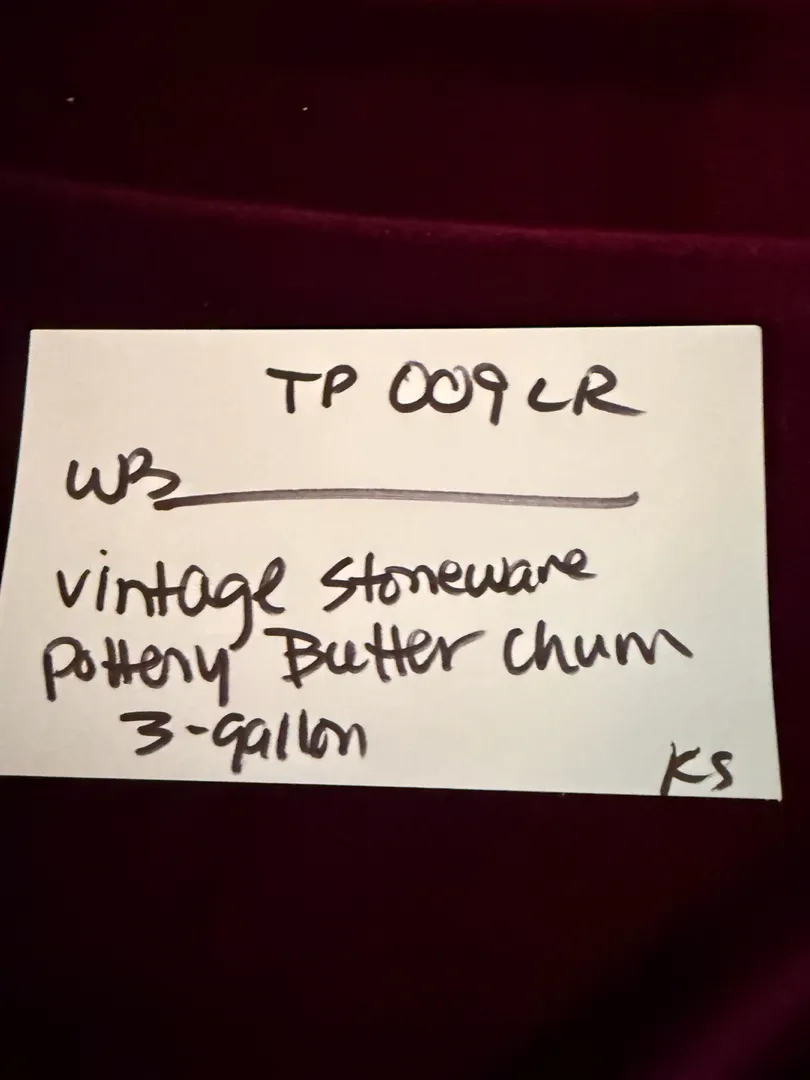 TP 009 LR
WB
vintage stoneware
pottery Butter churn
3-gallon
KS